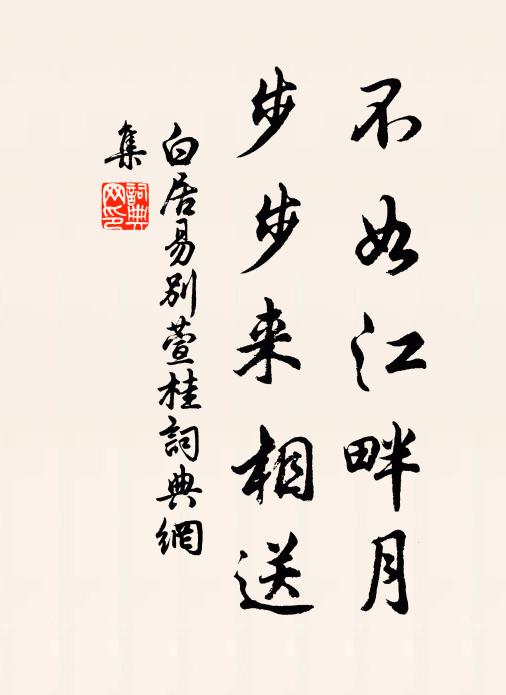 不如江畔月
步步来相送
白居易别萱桂詞典網
集
詞典
网印